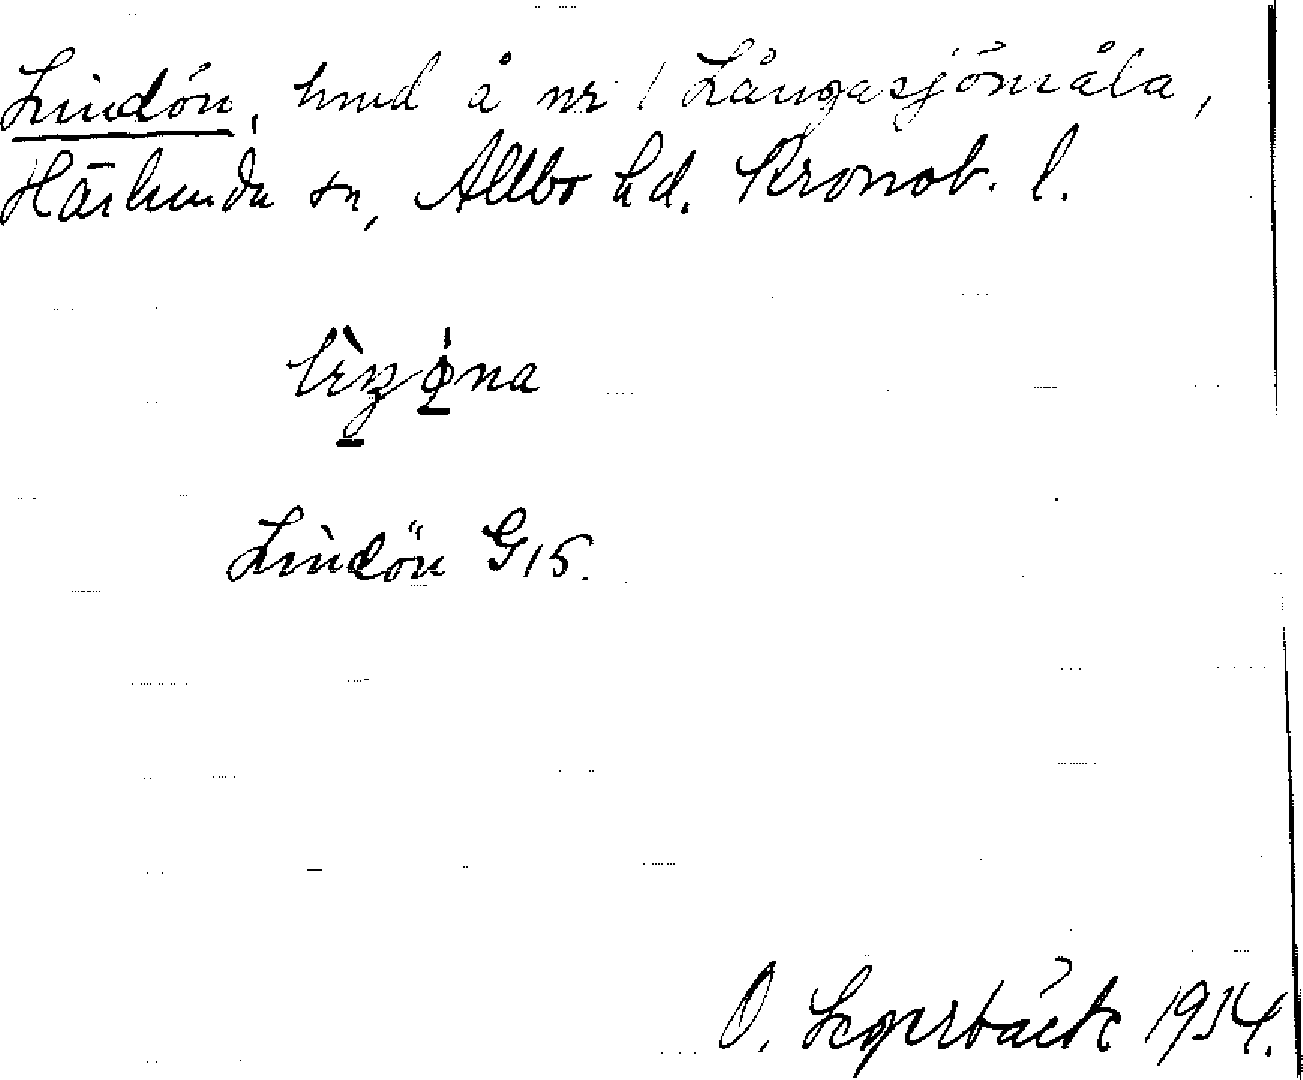 Lindön, hmd å nr 1 Långasjömåla,
Härlunda sn, Allbo hd. Kronob. l.
Lindön G15.
O. Segerbäck 1934.